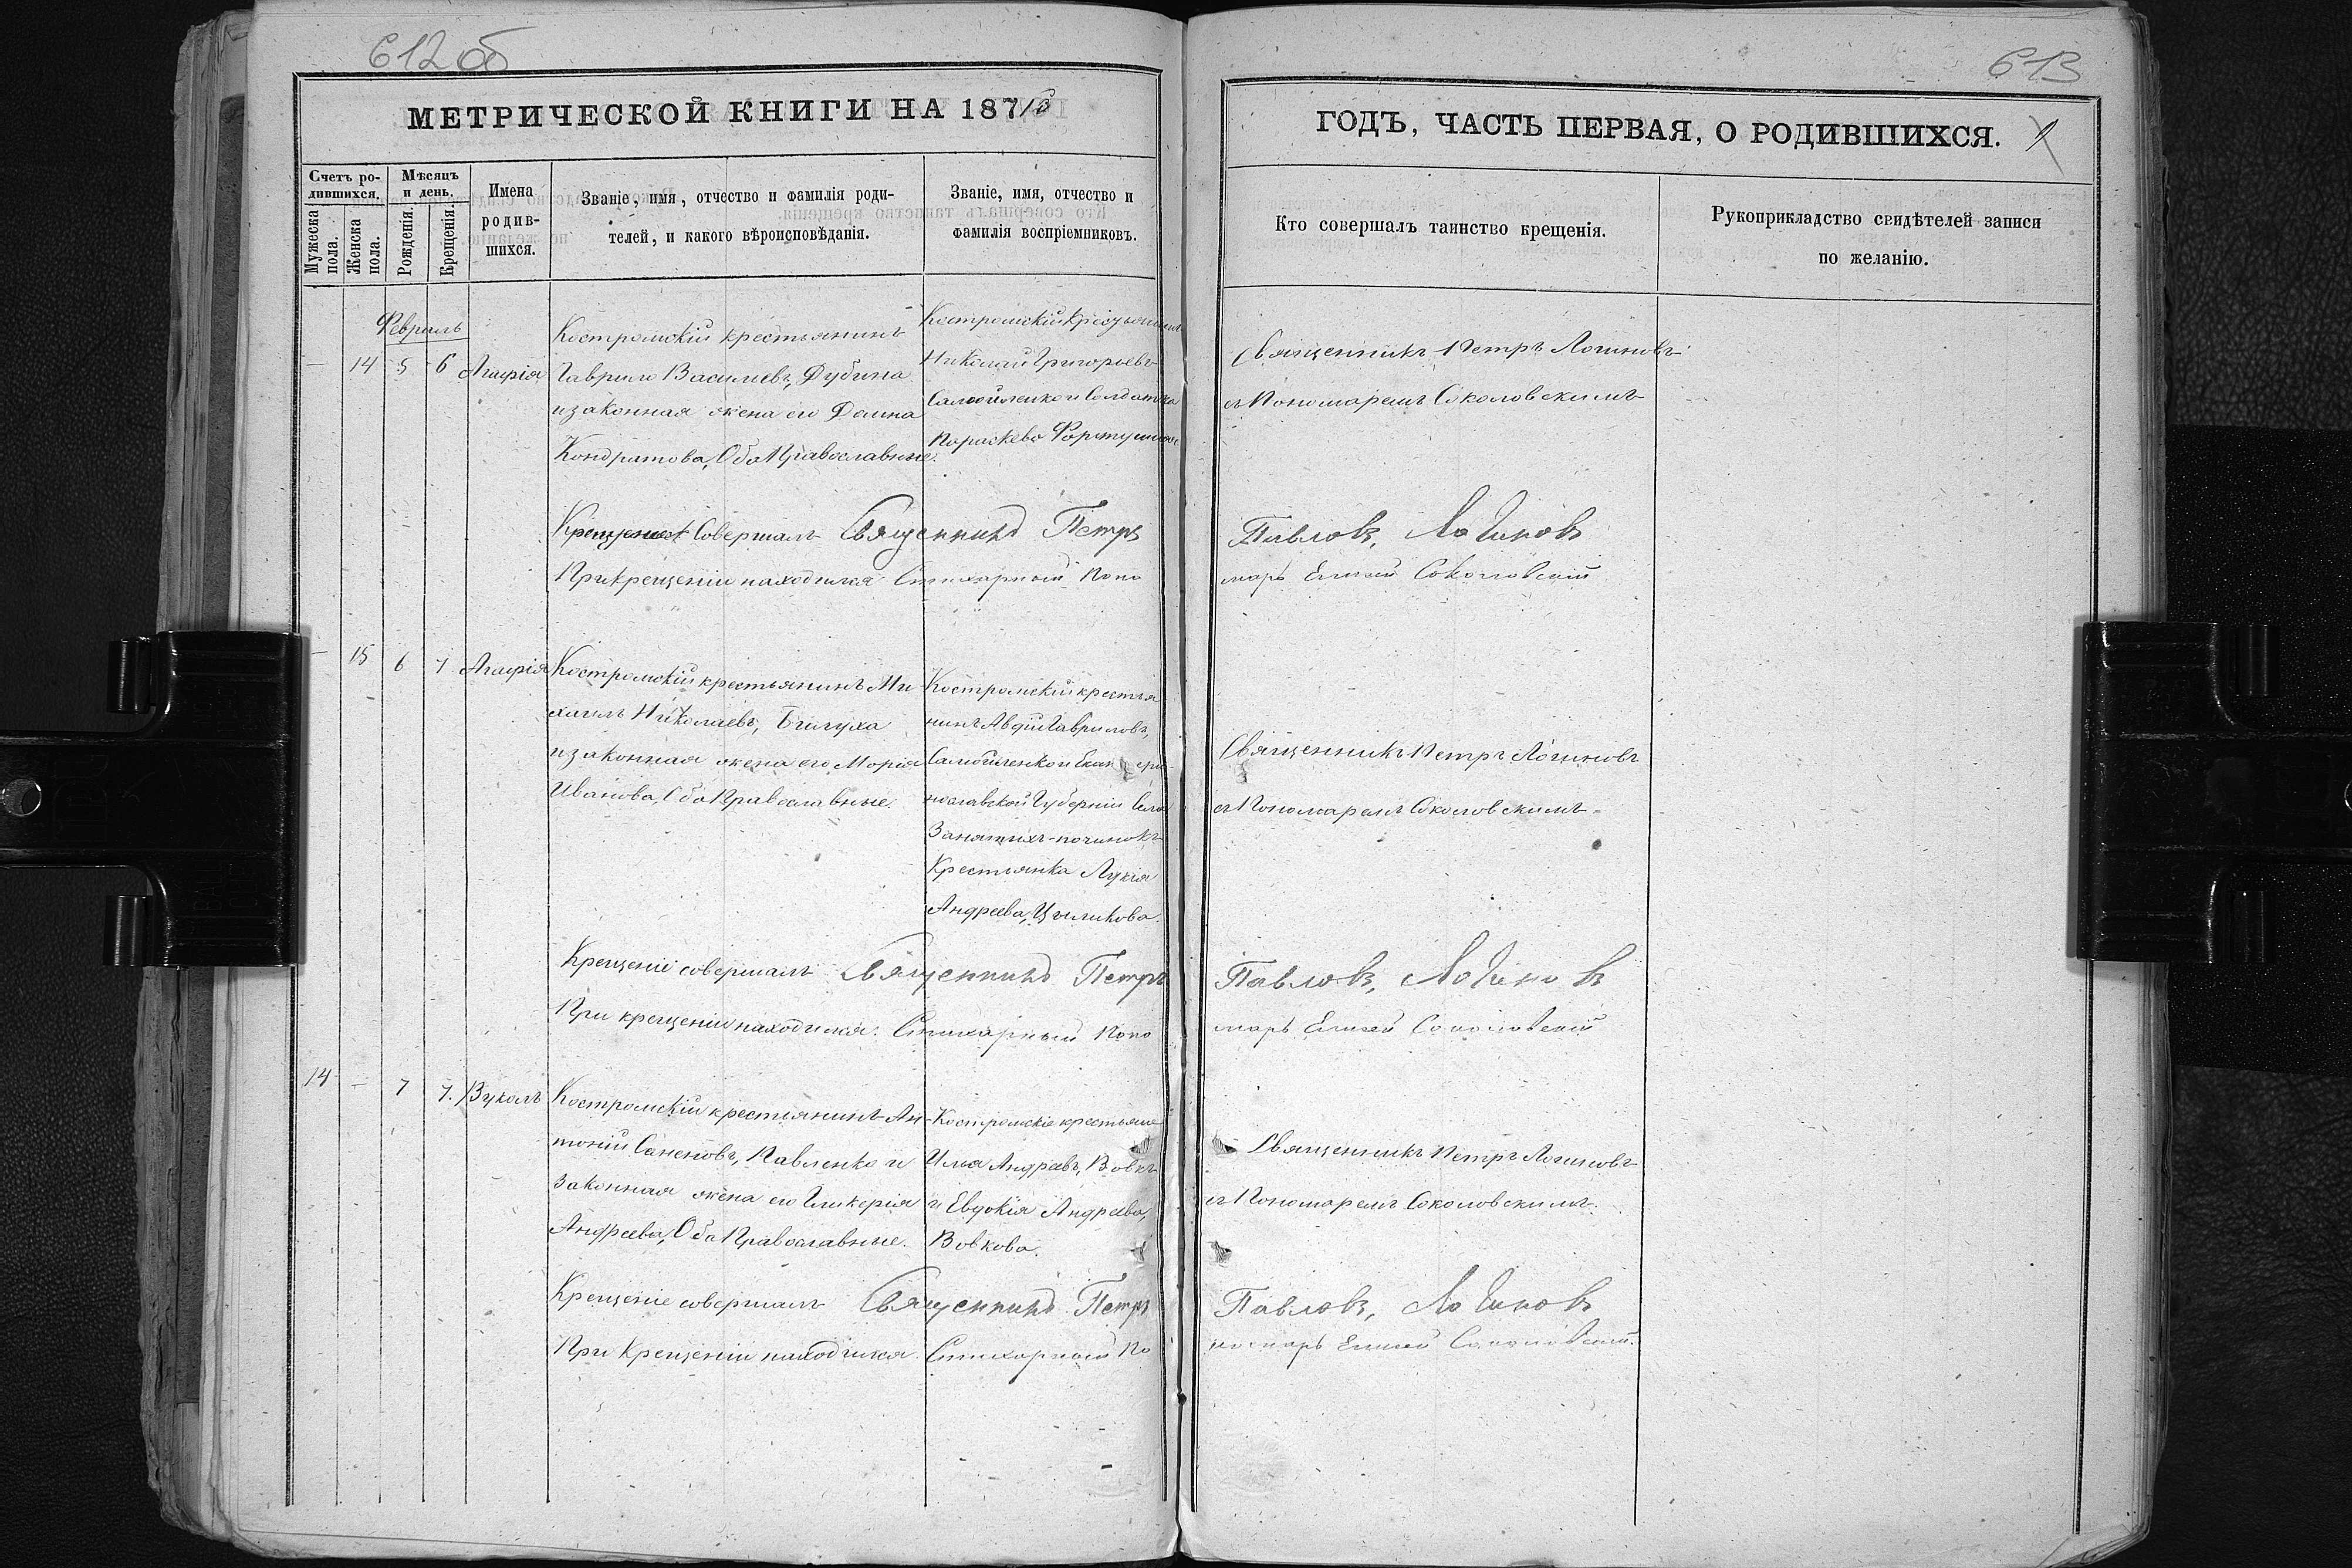 612 об
613
МЕТРИЧЕСКОЙ КНИГИ НА 187
ГОДЪ, ЧАСТЬ ПЕРВАЯ, О РОДИВШИХСЯ.
Счетъ ро-
дившихся.
Мужеска
пола.
Женска
пола.
Мѣсяцъ
и день.
Рожденія.
Крещенія.
Имена
родив-
шихся.
Званіе, имя, отчество и фамилія роди-
телей, и какого вѣроисповѣданія.
Званіе, имя, отчество и
фамилія воспріемниковъ.
Кто совершалъ таинство крещенія.
Рукоприкладство свидѣтелей записи
по желанію.
Февраль
— 14 5 6 Агафія
Костромскій крестьянинъ
Гаврило Васильевъ, Дубина
и законная жена его Домна
Кондратова, Оба Православные.
Костромскій крестьянинъ
Николай Григорьевъ
Самойленко и Солдатка
Параскева
Священникъ Петръ Логиновъ
съ Пономаремъ Соколовскимъ
Крещеніе Совершалъ Священникъ Петръ Павловъ, Логиновъ
При крещеніи находился Стихарный Пономарь Елисей Соколовскій
— 15 6 7 Агафія
Костромскій крестьянинъ Ми-
хаилъ Николаевъ, Билуха
и законная жена его Марія
Иванова, Оба Православные.
Костромскій крестья
нинъ Авдій Гавриловъ,
Самойленко и Екатери-
нославской Губерніи Села
крестьянка Лукія
Андреева,
Священникъ Петръ Логиновъ
съ Пономаремъ Соколовскимъ
Крещеніе совершалъ Священникъ Петръ Павловъ, Логиновъ
При крещеніи находился Стихарный Пономарь Елисей Соколовскій
14 — 7 7. Вуколъ
Костромскій крестьянинъ Ан-
тоній Семеновъ, Павленко и
законная жена его Гликерія
Андреева, Оба Православные.
Костромскіе крестьяне
Илья Андреевъ, Вовкъ
и Евдокія Андреева,
Вовкова.
Священникъ Петръ Логиновъ
съ Пономаремъ Соколовскимъ.
Крещеніе совершалъ Священникъ Петръ Павловъ, Логиновъ
При Крещеніи находился Стихарный Пономарь Елисей Соколовскій.